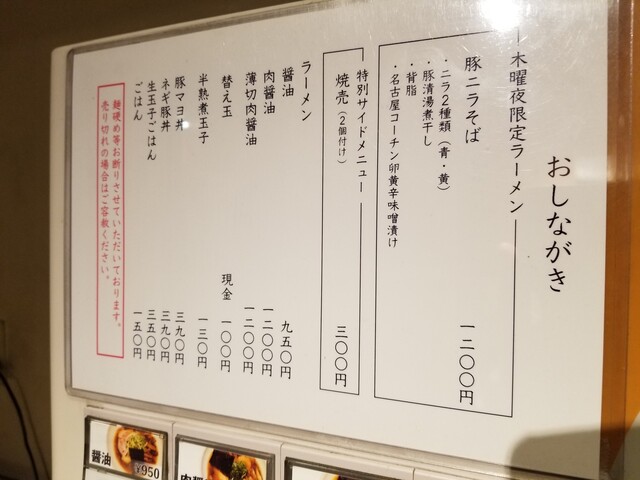 おしながき
木曜夜限定ラーメン
豚ニラそば 一二〇〇円
・ニラ2種類（青・黄）
・豚清湯煮干し
・背脂
・名古屋コーチン卵黄辛味噌漬け
特別サイドメニュー
焼売（2個付け） 三〇〇円
ラーメン
醤油 九五〇円
肉醤油 一二〇〇円
薄切肉醤油 一二〇〇円
替え玉 現金 一〇〇円
半熟煮玉子 一三〇円
豚マヨ丼 三九〇円
ネギ豚丼 三九〇円
生玉子ごはん 三五〇円
ごはん 一五〇円
麺硬め等お断りさせていただいております。
売り切れの場合はご容赦ください。
醤油
¥950